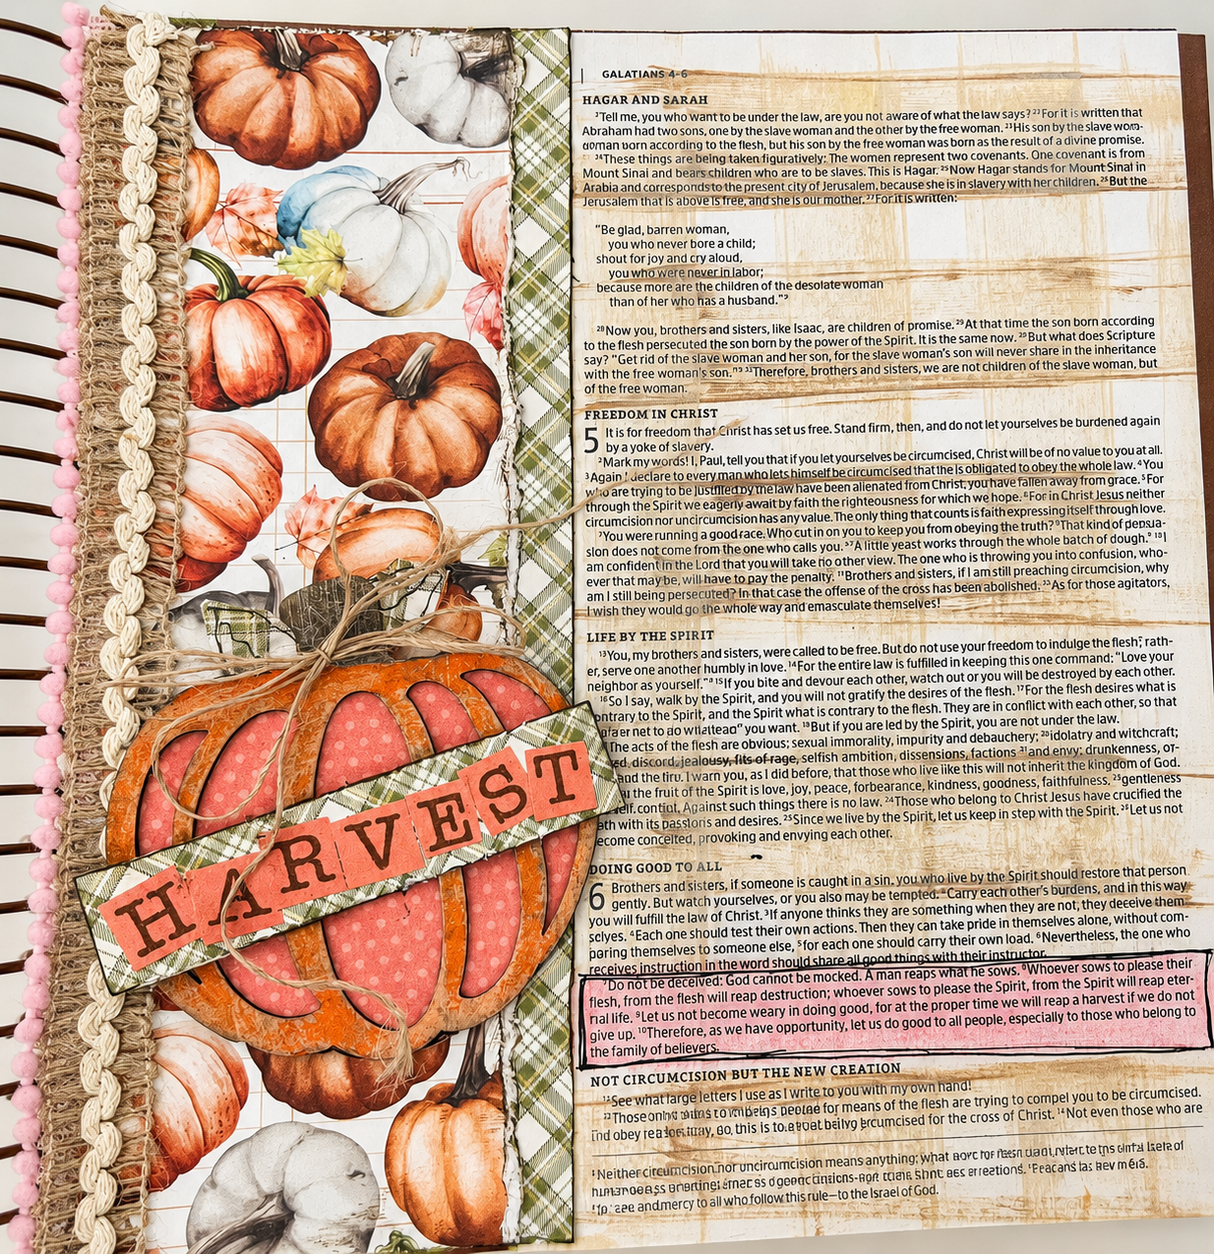 HARVEST
GALATIANS 4-6
HAGAR AND SARAH
²Tell me, you who want to be under the law, are you not aware of what the law says? ²³For it is written that
Abraham had two sons, one by the slave woman and the other by the free woman. ²³His son by the slave wom-
woman born according to the flesh, but his son by the free woman was born as the result of a divine promise.
²⁴These things are being taken figuratively: The women represent two covenants. One covenant is from
Mount Sinai and bears children who are to be slaves. This is Hagar. ²⁵Now Hagar stands for Mount Sinai in
Arabia and corresponds to the present city of Jerusalem, because she is in slavery with her children. ²⁶But the
Jerusalem that is above is free, and she is our mother. ²⁷For it is written:
“Be glad, barren woman,
you who never bore a child;
shout for joy and cry aloud,
you who were never in labor;
because more are the children of the desolate woman
than of her who has a husband.”⁹
²⁸Now you, brothers and sisters, like Isaac, are children of promise. ²⁹At that time the son born according
to the flesh persecuted the son born by the power of the Spirit. It is the same now. ³⁰But what does Scripture
say? “Get rid of the slave woman and her son, for the slave woman’s son will never share in the inheritance
with the free woman’s son.”⁹ ³¹Therefore, brothers and sisters, we are not children of the slave woman, but
of the free woman.
FREEDOM IN CHRIST
5 It is for freedom that Christ has set us free. Stand firm, then, and do not let yourselves be burdened again
by a yoke of slavery.
²Mark my words! I, Paul, tell you that if you let yourselves be circumcised, Christ will be of no value to you at all.
³Again I declare to every man who lets himself be circumcised that he is obligated to obey the whole law. ⁴You
who are trying to be justified by the law have been alienated from Christ; you have fallen away from grace. ⁵For
through the Spirit we eagerly await by faith the righteousness for which we hope. ⁶For in Christ Jesus neither
circumcision nor uncircumcision has any value. The only thing that counts is faith expressing itself through love.
⁷You were running a good race. Who cut in on you to keep you from obeying the truth? ⁸That kind of persua-
sion does not come from the one who calls you. ⁹“A little yeast works through the whole batch of dough.” ¹⁰I
am confident in the Lord that you will take no other view. The one who is throwing you into confusion, who-
ever that may be, will have to pay the penalty. ¹¹Brothers and sisters, if I am still preaching circumcision, why
am I still being persecuted? In that case the offense of the cross has been abolished. ¹²As for those agitators,
I wish they would go the whole way and emasculate themselves!
LIFE BY THE SPIRIT
¹³You, my brothers and sisters, were called to be free. But do not use your freedom to indulge the flesh; rath-
er, serve one another humbly in love. ¹⁴For the entire law is fulfilled in keeping this one command: “Love your
neighbor as yourself.” ¹⁵If you bite and devour each other, watch out or you will be destroyed by each other.
¹⁶So I say, walk by the Spirit, and you will not gratify the desires of the flesh. ¹⁷For the flesh desires what is
ontrary to the Spirit, and the Spirit what is contrary to the flesh. They are in conflict with each other, so that
net to do you want. ¹⁸But if you are led by the Spirit, you are not under the law.
The acts of the flesh are obvious; sexual immorality, impurity and debauchery; ²⁰idolatry and witchcraft;
discord, jealousy, fits of rage, selfish ambition, dissensions, factions ²¹and envy; drunkenness, or-
I warn you, as I did before, that those who live like this will not inherit the kingdom of God.
the fruit of the Spirit is love, joy, peace, forbearance, kindness, goodness, faithfulness. ²³gentleness
Against such things there is no law. ²⁴Those who belong to Christ Jesus have crucified the
with its passions and desires. ²⁵Since we live by the Spirit, let us keep in step with the Spirit. ²⁶Let us not
ecome conceited, provoking and envying each other.
DOING GOOD TO ALL
6 Brothers and sisters, if someone is caught in a sin, you who live by the Spirit should restore that person
gently. But watch yourselves, or you also may be tempted. ²Carry each other’s burdens, and in this way
you will fulfill the law of Christ. ³If anyone thinks they are something when they are not, they deceive them-
selves. ⁴Each one should test their own actions. Then they can take pride in themselves alone, without com-
paring themselves to someone else, ⁵for each one should carry their own load. ⁶Nevertheless, the one who
receives instruction in the word should share all good things with their instructor.
⁷Do not be deceived: God cannot be mocked. A man reaps what he sows. ⁸Whoever sows to please their
flesh, from the flesh will reap destruction; whoever sows to please the Spirit, from the Spirit will reap eter-
nal life. ⁹Let us not become weary in doing good, for at the proper time we will reap a harvest if we do not
give up. ¹⁰Therefore, as we have opportunity, let us do good to all people, especially to those who belong to
the family of believers.
NOT CIRCUMCISION BUT THE NEW CREATION
¹¹See what large letters I use as I write to you with my own hand!
¹²Those for means of the flesh are trying to compel you to be circumcised.
obey this is to for the cross of Christ. ¹⁴Not even those who are
Neither circumcision nor uncircumcision means anything; what
and mercy to all who follow this rule—to the Israel of God.